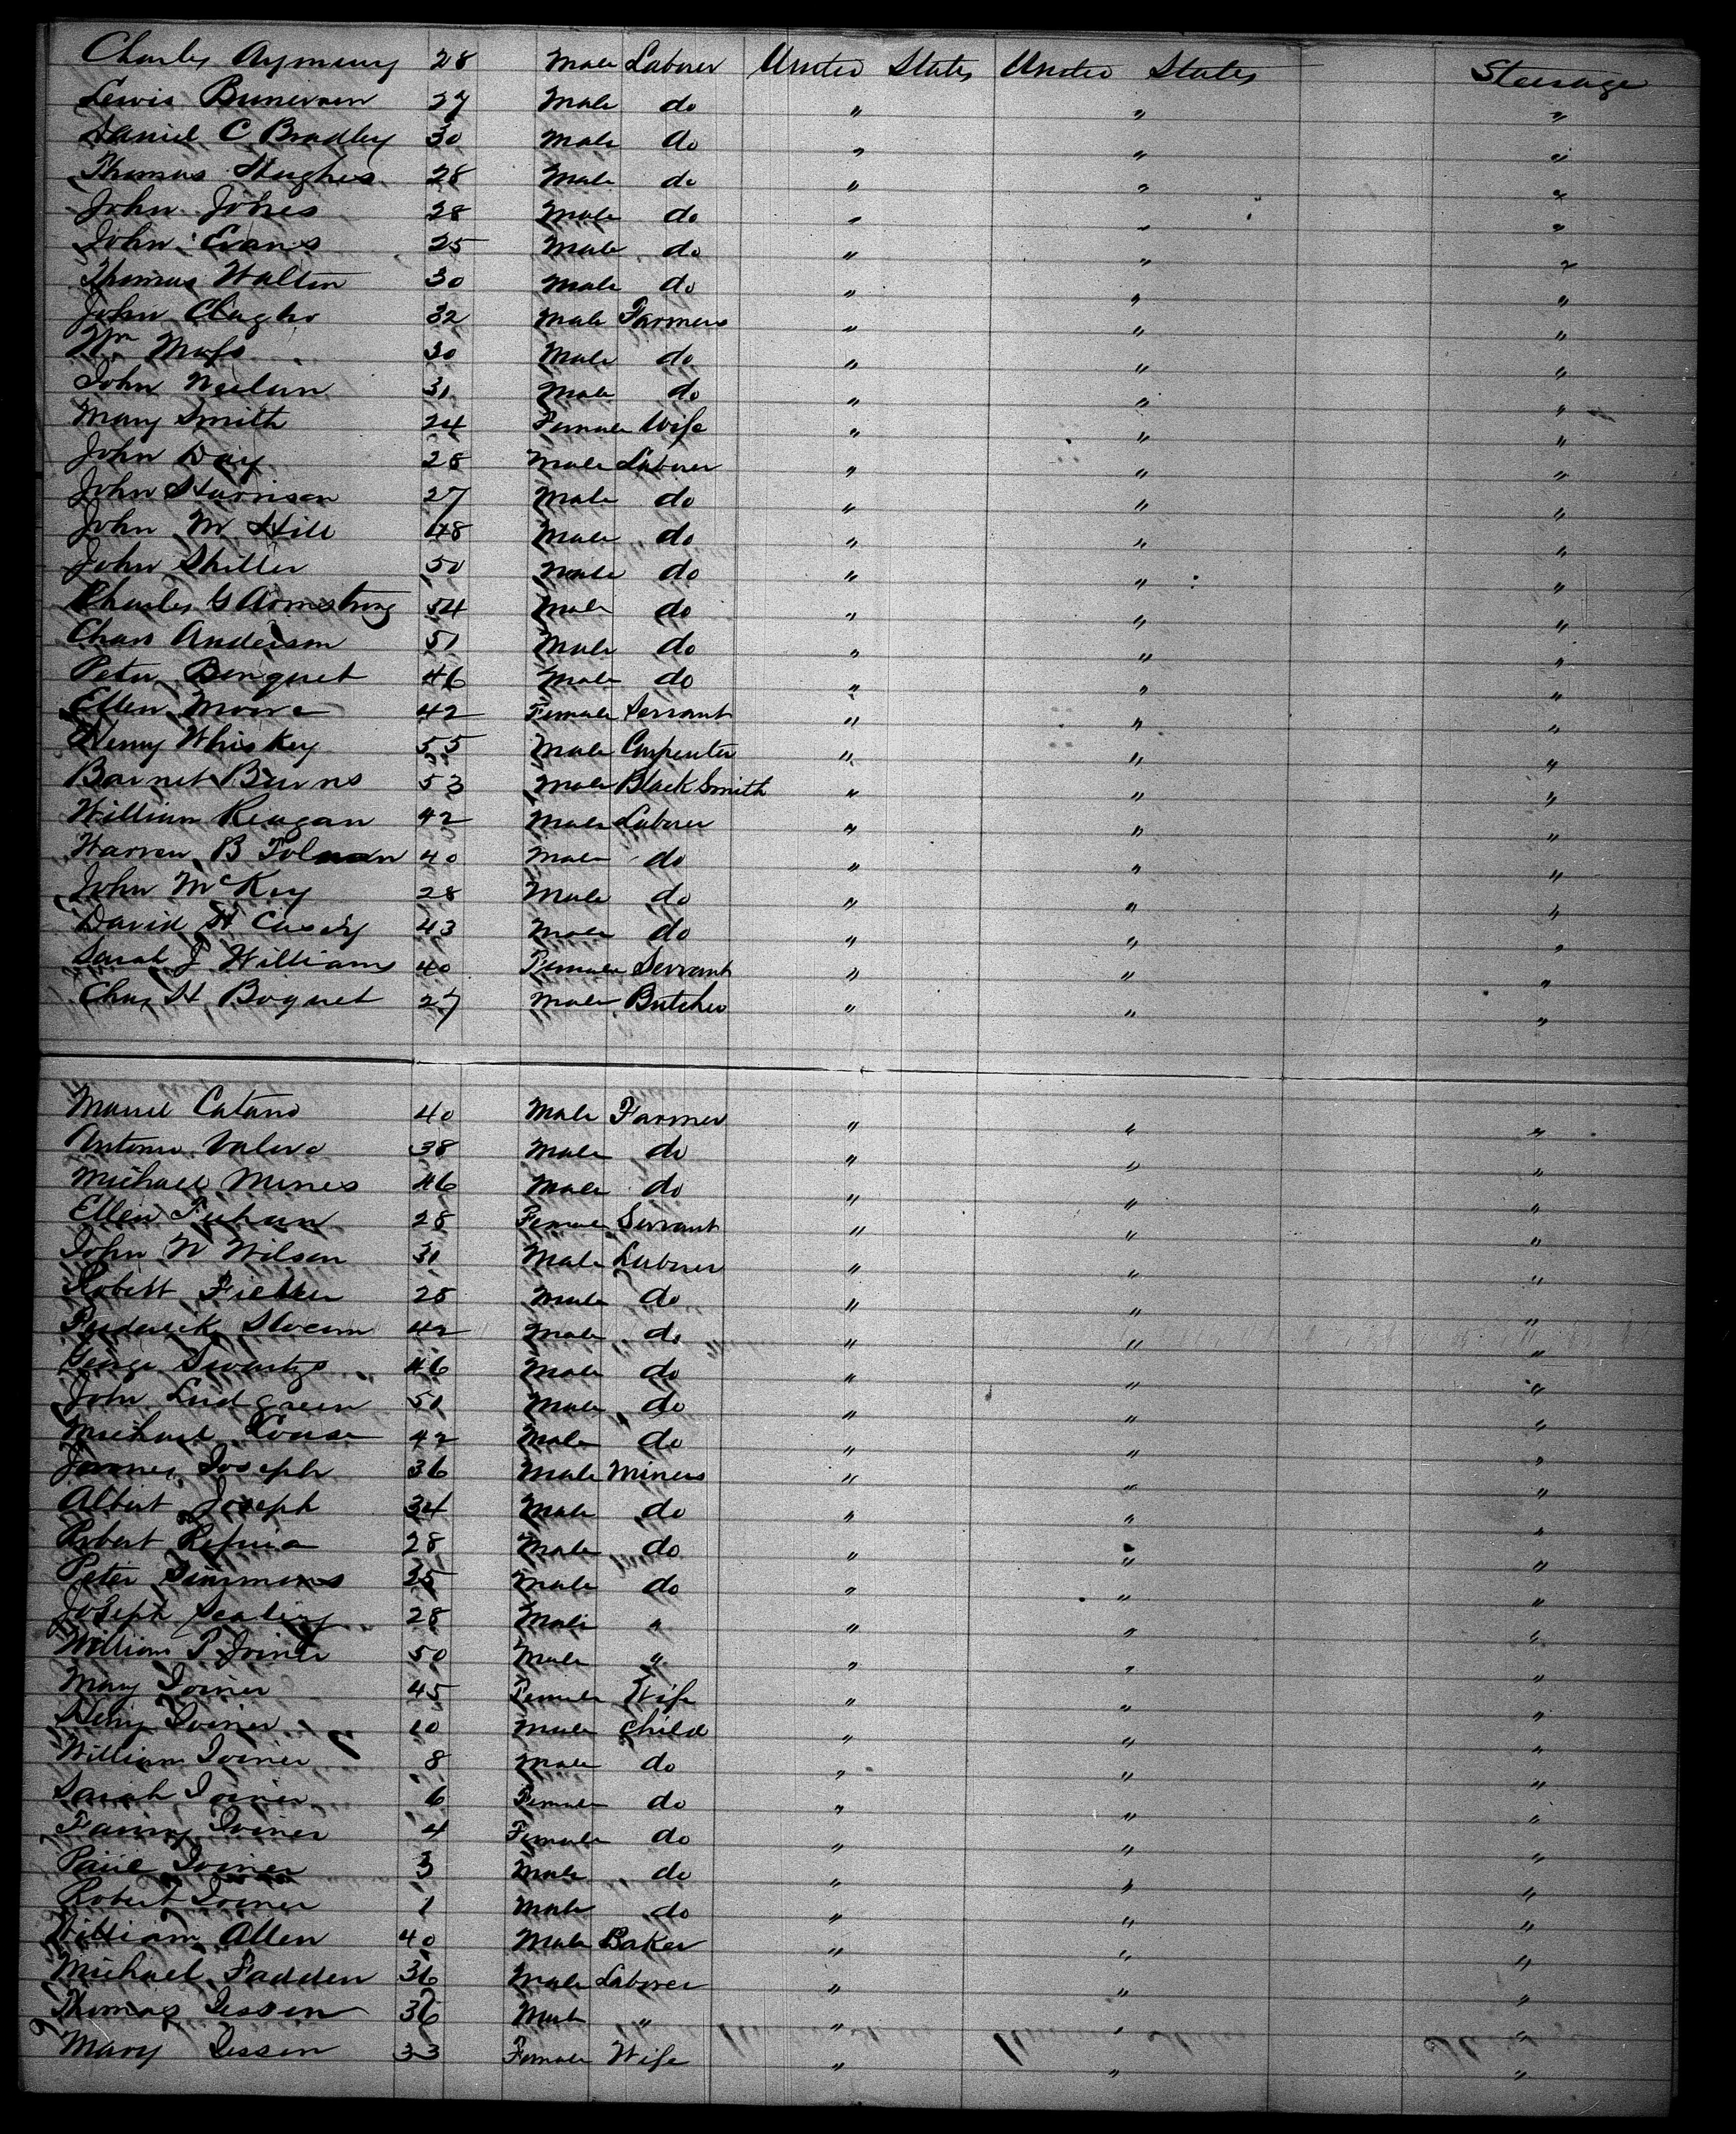 Charles 28 Male Laborer United States United States Steerage
Lewis 27 Male do " " "
Daniel C Bradley 30 Male do " " "
Thomas Hughes 28 Male do " " "
John Jones 28 Male do " " "
John Evans 25 Male do " " "
Thomas Walton 30 Male do " " "
John 32 Male Farmers " " "
Wm 30 Male do " " "
John 31 Male do " " "
Mary Smith 24 Female Wife " " "
John Day 28 Male Laborer " " "
John Harrison 27 Male do " " "
John M Hill 48 Male do " " "
John 50 Male do " " "
Charles G Armstrong 54 Male do " " "
Chas Anderson 51 Male do " " "
Peter Benquet 46 Male do " " "
Ellen Moore 42 Female Servant " " "
Henry Whiskey 55 Male Carpenter " " "
Barnet Burns 53 Male Black Smith " " "
William Reagan 42 Male Laborer " " "
Warren B Tolman 40 Male do " " "
John McKey 28 Male do " " "
David H Casey 43 Male do " " "
Sarah J Williams 40 Female Servant " " "
Chas H Boquet 27 Male Butcher " " "
Catano 40 Male Farmer " " "
Antonio 38 Male do " " "
Michael Mines 46 Male do " " "
Ellen 28 Female Servant " " "
John W Wilson 31 Male Laborer " " "
Robert 28 Male do " " "
Frederick Slocum 42 Male do " " "
George Swartzs 46 Male do " " "
John Lindgreen 51 Male do " " "
Michael 42 Male do " " "
James Joseph 36 Male Miners " " "
Albert Joseph 34 Male do " " "
Robert 28 Male do " " "
Peter Simmons 35 Male do " " "
Joseph 28 Male " " " "
William P Joiner 50 Male " " " "
Mary Joiner 45 Female Wife " " "
Henry Joiner 10 Male Child " " "
William Joiner 8 Male do " " "
Sarah Joiner 6 Female do " " "
Fanny Joiner 4 Female do " " "
Paul Joiner 3 Male do " " "
Robert Joiner 1 Male do " " "
William Allen 40 Male Baker " " "
Michael Fadden 36 Male Laborer " " "
Thomas Jessen 36 Male " " " "
Mary Jessen 33 Female Wife " " "